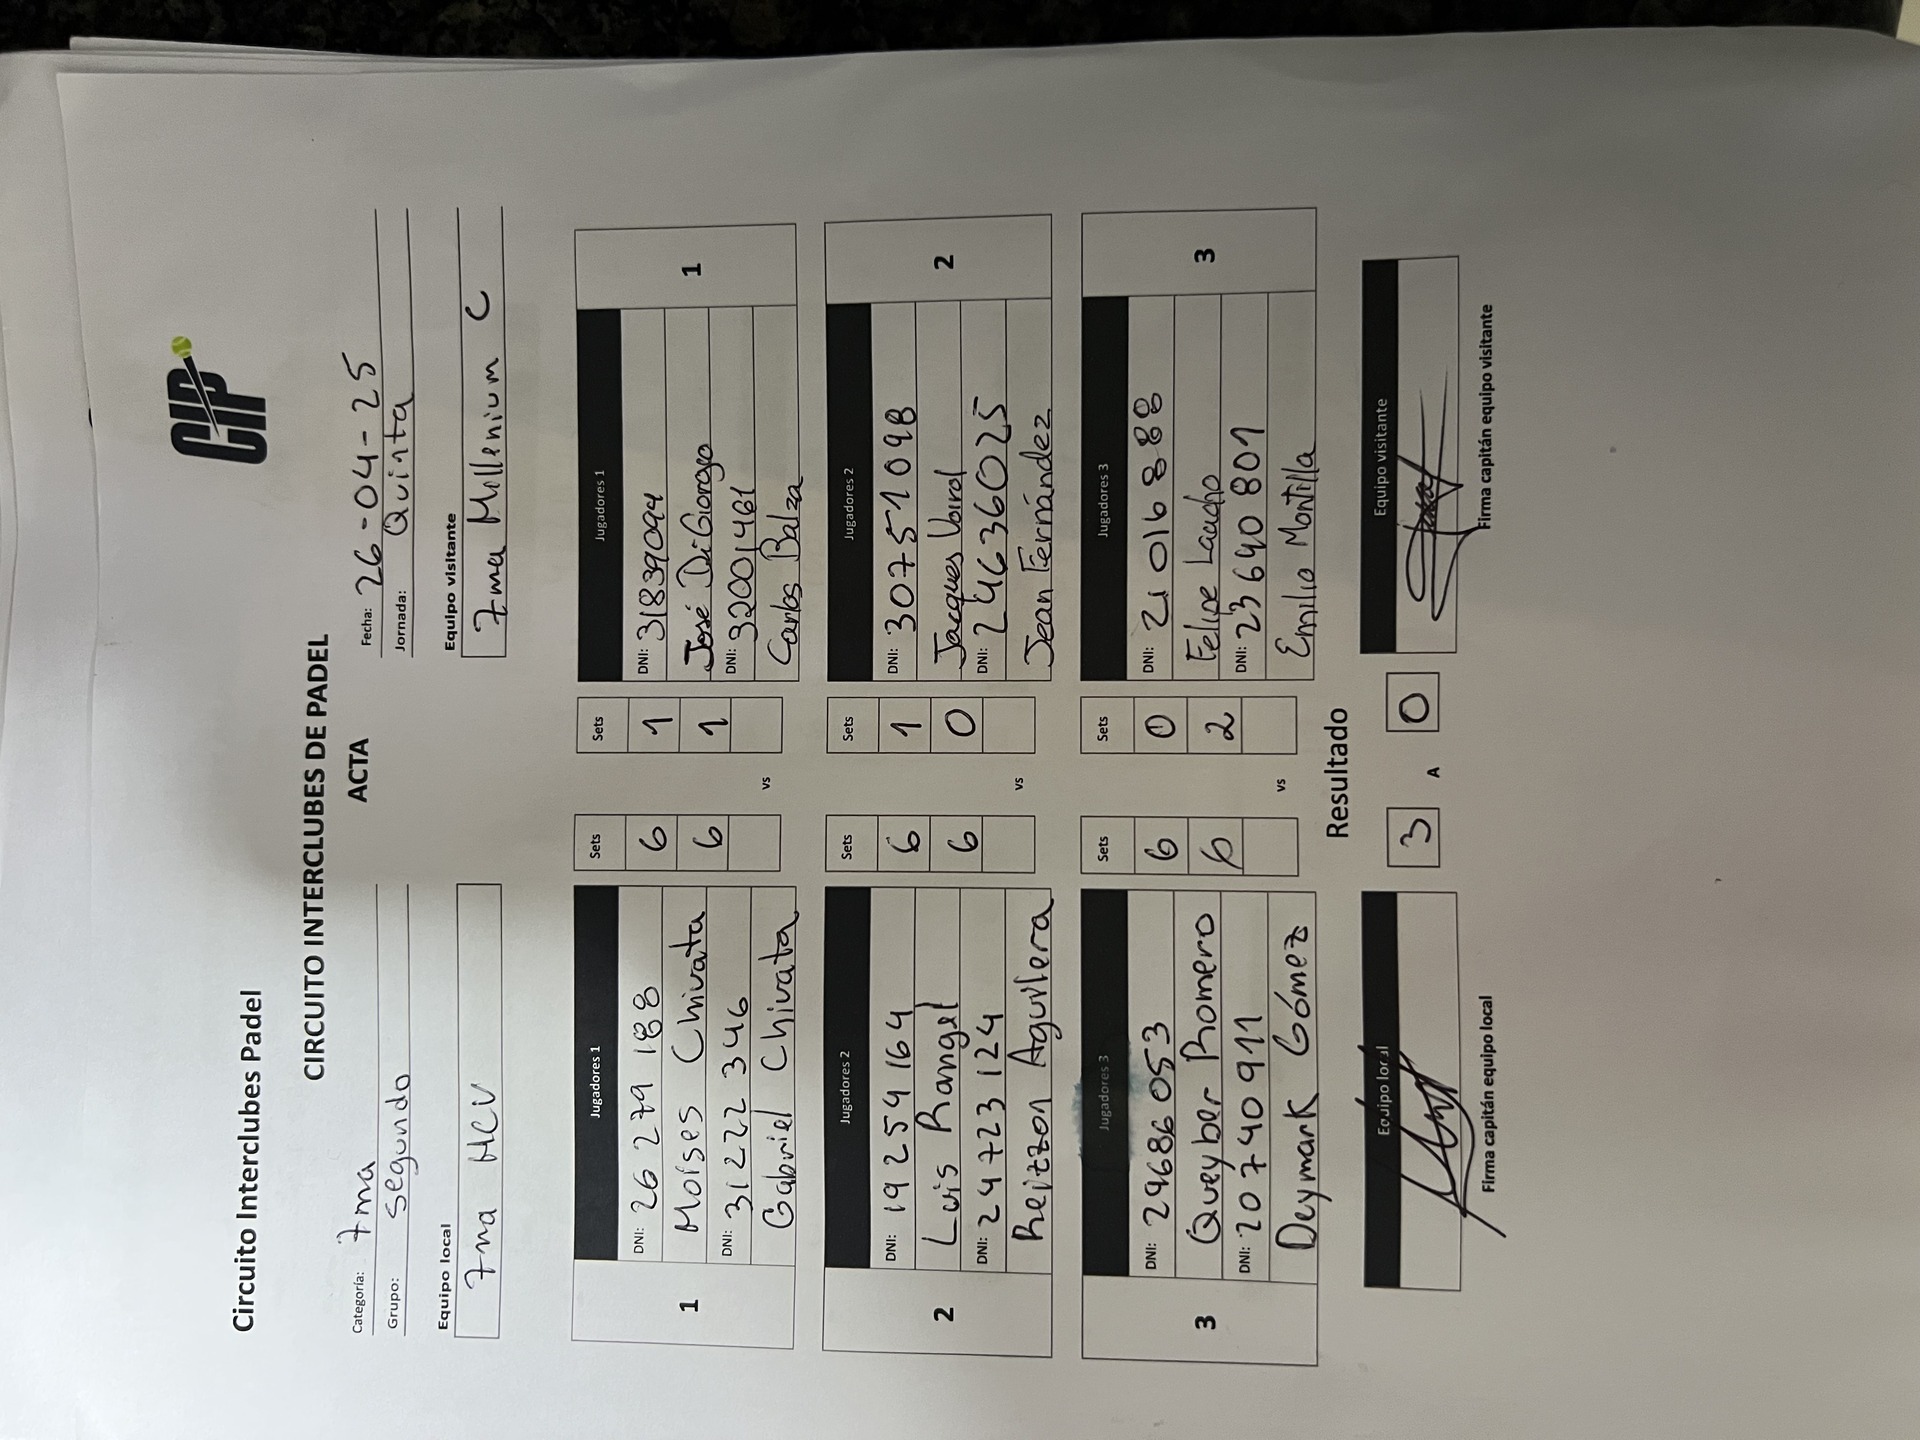 Circuito Interclubes Padel
CIP
CIRCUITO INTERCLUBES DE PADEL
ACTA
Categoría: 7ma
Fecha: 26-04-25
Grupo: Segundo
Jornada: Quinta
Equipo local
Equipo visitante
7ma HCV
7ma Millenium C
Jugadores 1 Sets Sets Jugadores 1
1 DNI: 26 279 188 6 1 DNI: 31839094 1
Moises Chivata 6 1 José DiGiorgio
DNI: 31 222 346 DNI: 32001461
Gabriel Chivata vs Carlos Balza
Jugadores 2 Sets Sets Jugadores 2
2 DNI: 19 254 164 6 1 DNI: 30751098 2
Luis Rangel 6 0 Jacques
DNI: 24 723 124 DNI: 24636025
Reizzon Aguilera vs Jean Fernández
Jugadores 3 Sets Sets Jugadores 3
3 DNI: 29686053 6 0 DNI: 21016888 3
Queyber Romero 6 2 Felipe
DNI: 20740911 DNI: 23640801
Deymark Gómez vs Emilio Montilla
Resultado
Equipo local 3 A 0 Equipo visitante
Firma capitán equipo local
Firma capitán equipo visitante